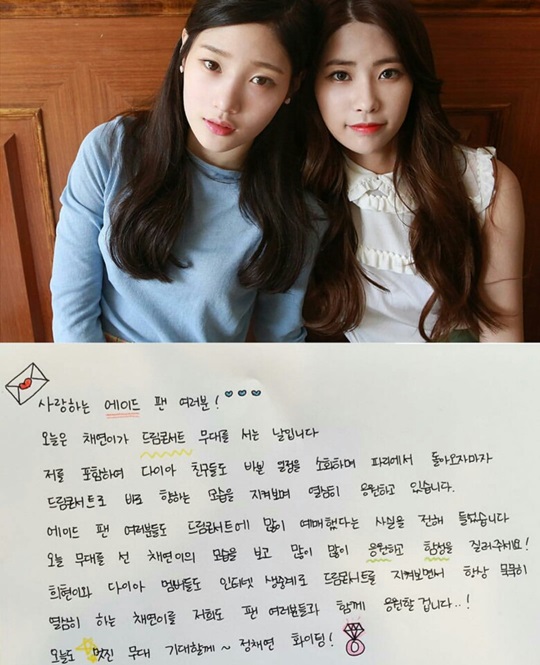 사랑하는 에이드 팬 여러분!
오늘은 채연이가 드림콘서트 무대를 서는 날입니다
저를 포함하여 다이아 친구들도 바쁜 일정을 소화하며 파리에서 돌아오자마자
드림콘서트로 바로 향하는 모습을 지켜보며 열심히 응원하고 있습니다.
에이드 팬 여러분들도 드림콘서트에 많이 예매했다는 사실을 전해 들었습니다
오늘 무대를 선 채연이의 모습을 보고 많이 많이 응원하고 함성을 질러주세요!
희현이와 다이아 멤버들도 인터넷 생중계로 드림콘서트를 지켜보면서 항상 묵묵히
열심히 하는 채연이를 저희도 팬 여러분들과 함께 응원할 겁니다..!
오늘도 멋진 무대 기대할께~ 정채연 화이팅!